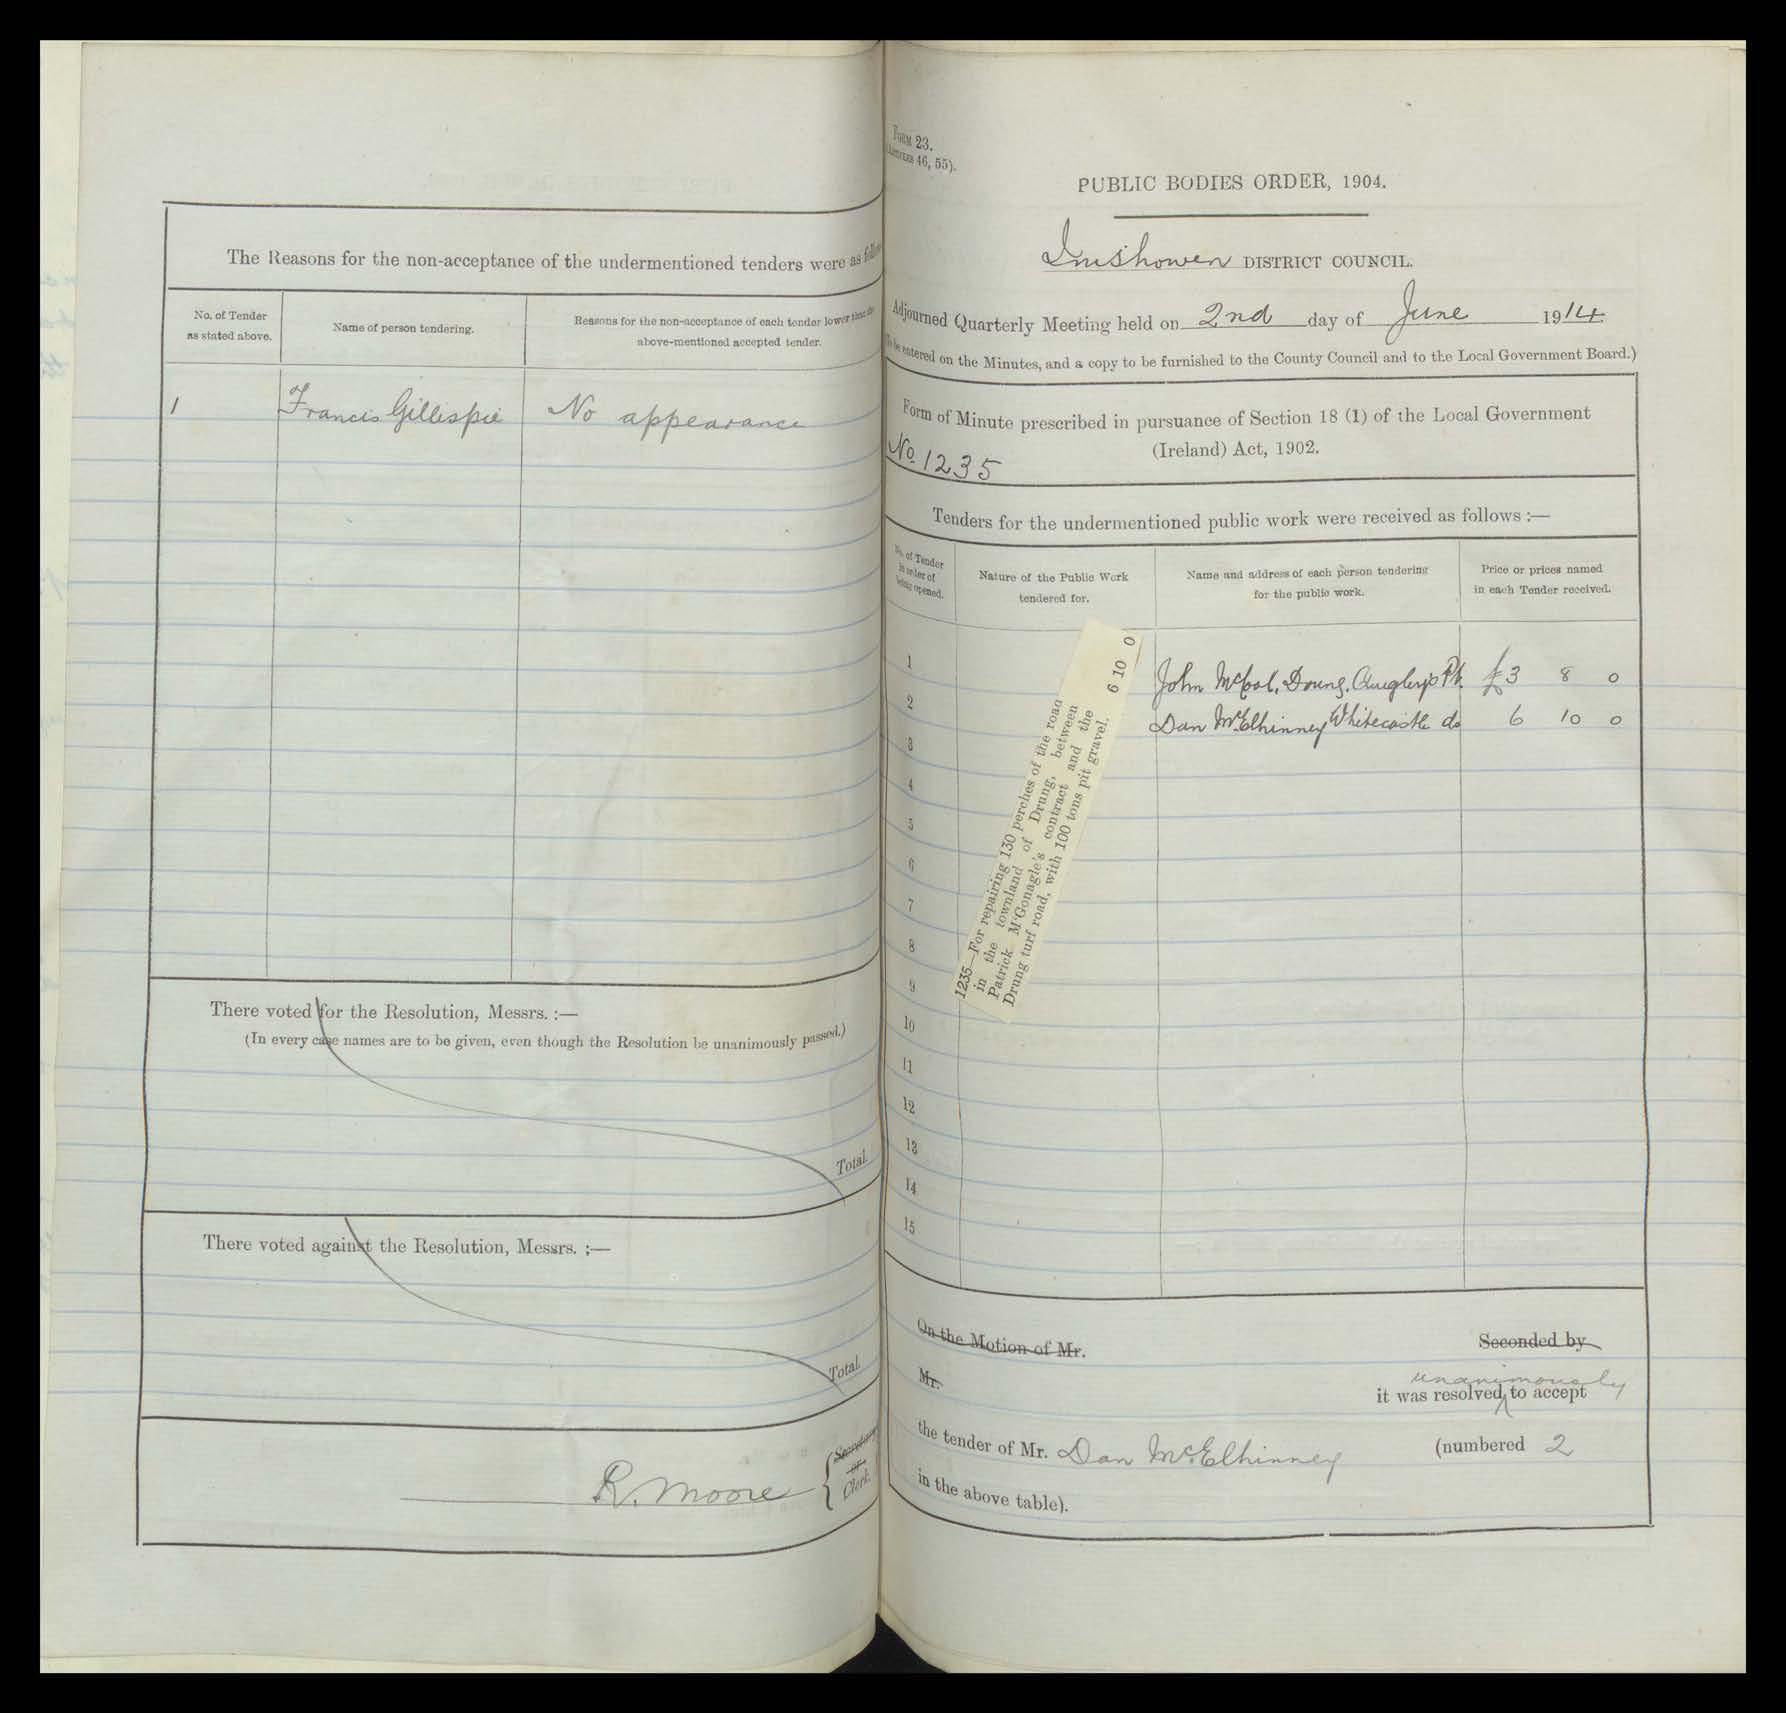 The Reasons for the non-acceptance of the undermentioned tenders were as follows
No. of Tender
as stated above.
Name of person tendering.
Reasons for the non-acceptance of each tender lower than the
above-mentioned accepted tender.
1 Francis Gillespie No appearance
There voted for the Resolution, Messrs. :—
(In every case names are to be given, even though the Resolution be unanimously passed.)
Total.
There voted against the Resolution, Messrs. :—
Total.
R. Moore
Secretary
or
Clerk.
FORM 23.
(ARTICLES 46, 55).
PUBLIC BODIES ORDER, 1904.
Inishowen DISTRICT COUNCIL.
Adjourned Quarterly Meeting held on 2nd day of June 1914
(To be entered on the Minutes, and a copy to be furnished to the County Council and to the Local Government Board.)
Form of Minute prescribed in pursuance of Section 18 (1) of the Local Government
(Ireland) Act, 1902.
No. 1235
Tenders for the undermentioned public work were received as follows :—
No. of Tender
in order of
being opened.
Nature of the Public Work
tendered for.
Name and address of each person tendering
for the public work.
Price or prices named
in each Tender received.
1235—For repairing 130 perches of the road
in the townland of Drung, between
Patrick M'Gonagle's contract and the
Drung turf road, with 100 tons pit gravel. 6 10 0
1 John McCool, Drung, Quigley's Pt. £3 8 0
2 Dan McElhinney Whitecastle do 6 10 0
3
4
5
6
7
8
9
10
11
12
13
14
15
On the Motion of Mr. Seconded by
Mr. it was resolved unanimously to accept
the tender of Mr. Dan McElhinney (numbered 2
in the above table).